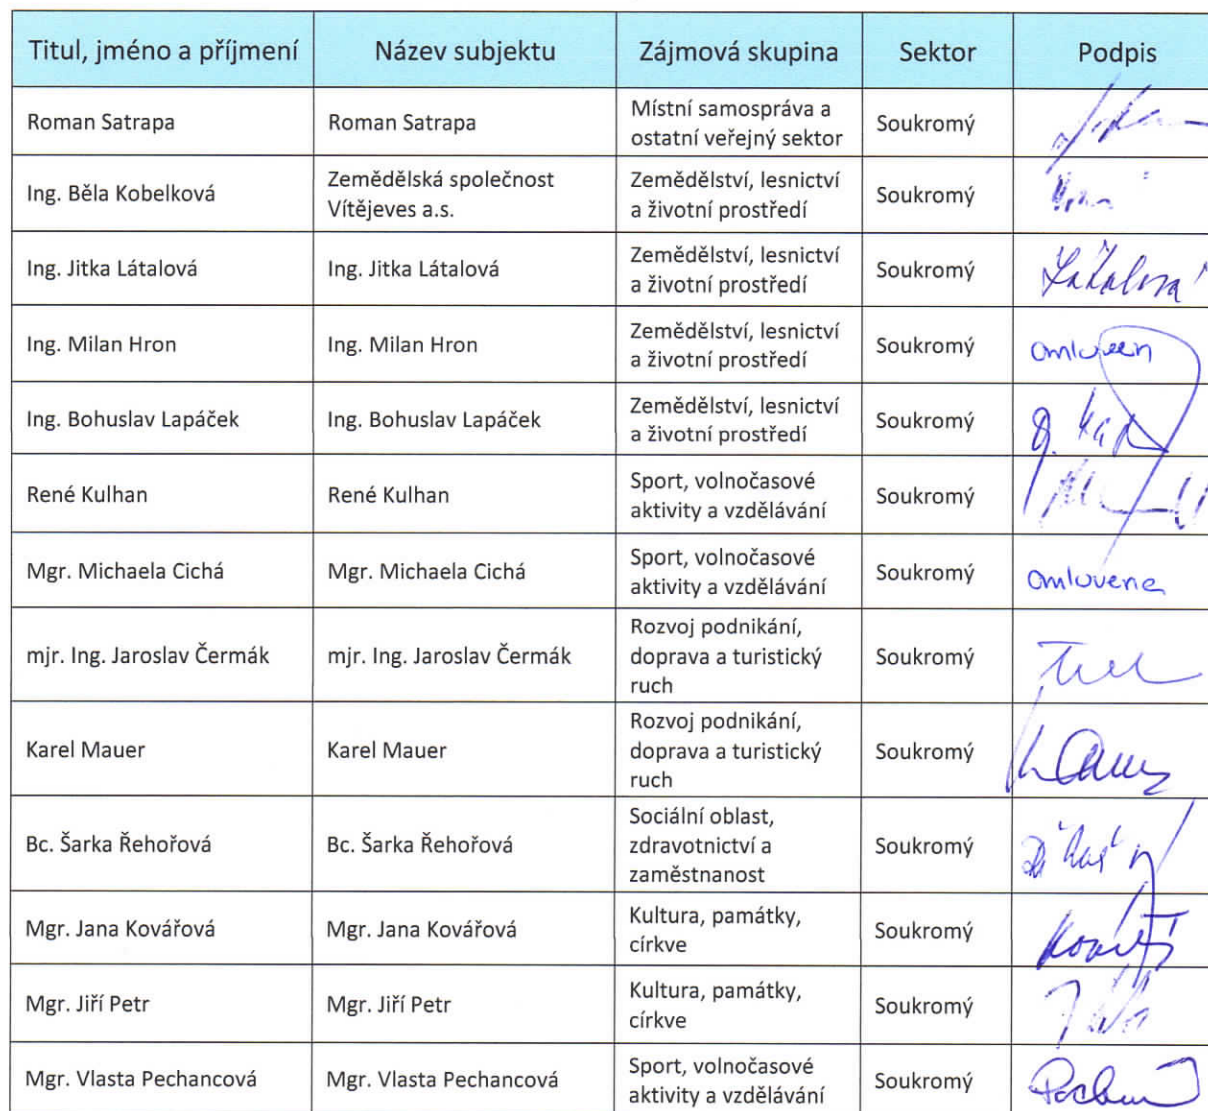 Titul, jméno a příjmení Název subjektu Zájmová skupina Sektor Podpis
Roman Satrapa Roman Satrapa Místní samospráva a
ostatní veřejný sektor Soukromý
Ing. Běla Kobelková Zemědělská společnost
Vítějeves a.s. Zemědělství, lesnictví
a životní prostředí Soukromý
Ing. Jitka Látalová Ing. Jitka Látalová Zemědělství, lesnictví
a životní prostředí Soukromý Látalová
Ing. Milan Hron Ing. Milan Hron Zemědělství, lesnictví
a životní prostředí Soukromý omluven
Ing. Bohuslav Lapáček Ing. Bohuslav Lapáček Zemědělství, lesnictví
a životní prostředí Soukromý
René Kulhan René Kulhan Sport, volnočasové
aktivity a vzdělávání Soukromý
Mgr. Michaela Cichá Mgr. Michaela Cichá Sport, volnočasové
aktivity a vzdělávání Soukromý omluvena
mjr. Ing. Jaroslav Čermák mjr. Ing. Jaroslav Čermák Rozvoj podnikání,
doprava a turistický
ruch Soukromý
Karel Mauer Karel Mauer Rozvoj podnikání,
doprava a turistický
ruch Soukromý
Bc. Šarka Řehořová Bc. Šarka Řehořová Sociální oblast,
zdravotnictví a
zaměstnanost Soukromý
Mgr. Jana Kovářová Mgr. Jana Kovářová Kultura, památky,
církve Soukromý
Mgr. Jiří Petr Mgr. Jiří Petr Kultura, památky,
církve Soukromý
Mgr. Vlasta Pechancová Mgr. Vlasta Pechancová Sport, volnočasové
aktivity a vzdělávání Soukromý